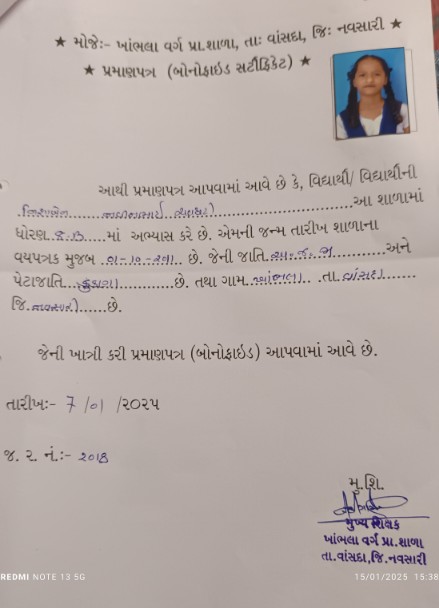 ★ મોજે:- ખાંભલા વર્ગ પ્રા.શાળા, તા: વાંસદા, જિ: નવસારી ★
★ પ્રમાણપત્ર (બોનોફાઇડ સર્ટીફિકેટ) ★
આથી પ્રમાણપત્ર આપવામાં આવે છે કે, વિદ્યાર્થી/ વિદ્યાર્થીની
આ શાળામાં
ધોરણ માં અભ્યાસ કરે છે. એમની જન્મ તારીખ શાળાના
વયપત્રક મુજબ છે. જેની જાતિ અને
પેટાજાતિ છે. તથા ગામ ખાંભલા તા. વાંસદા
જિ. નવસારી છે.
જેની ખાત્રી કરી પ્રમાણપત્ર (બોનોફાઇડ) આપવામાં આવે છે.
તારીખ:- 7 /૦1 /૨૦૨૫
જ. ૨. નં.:-
મુ.શિ.
મુખ્ય શિક્ષક
ખાંભલા વર્ગ પ્રા.શાળા
તા.વાંસદા,જિ.નવસારી
REDMI NOTE 13 5G 15/01/2025 15:38